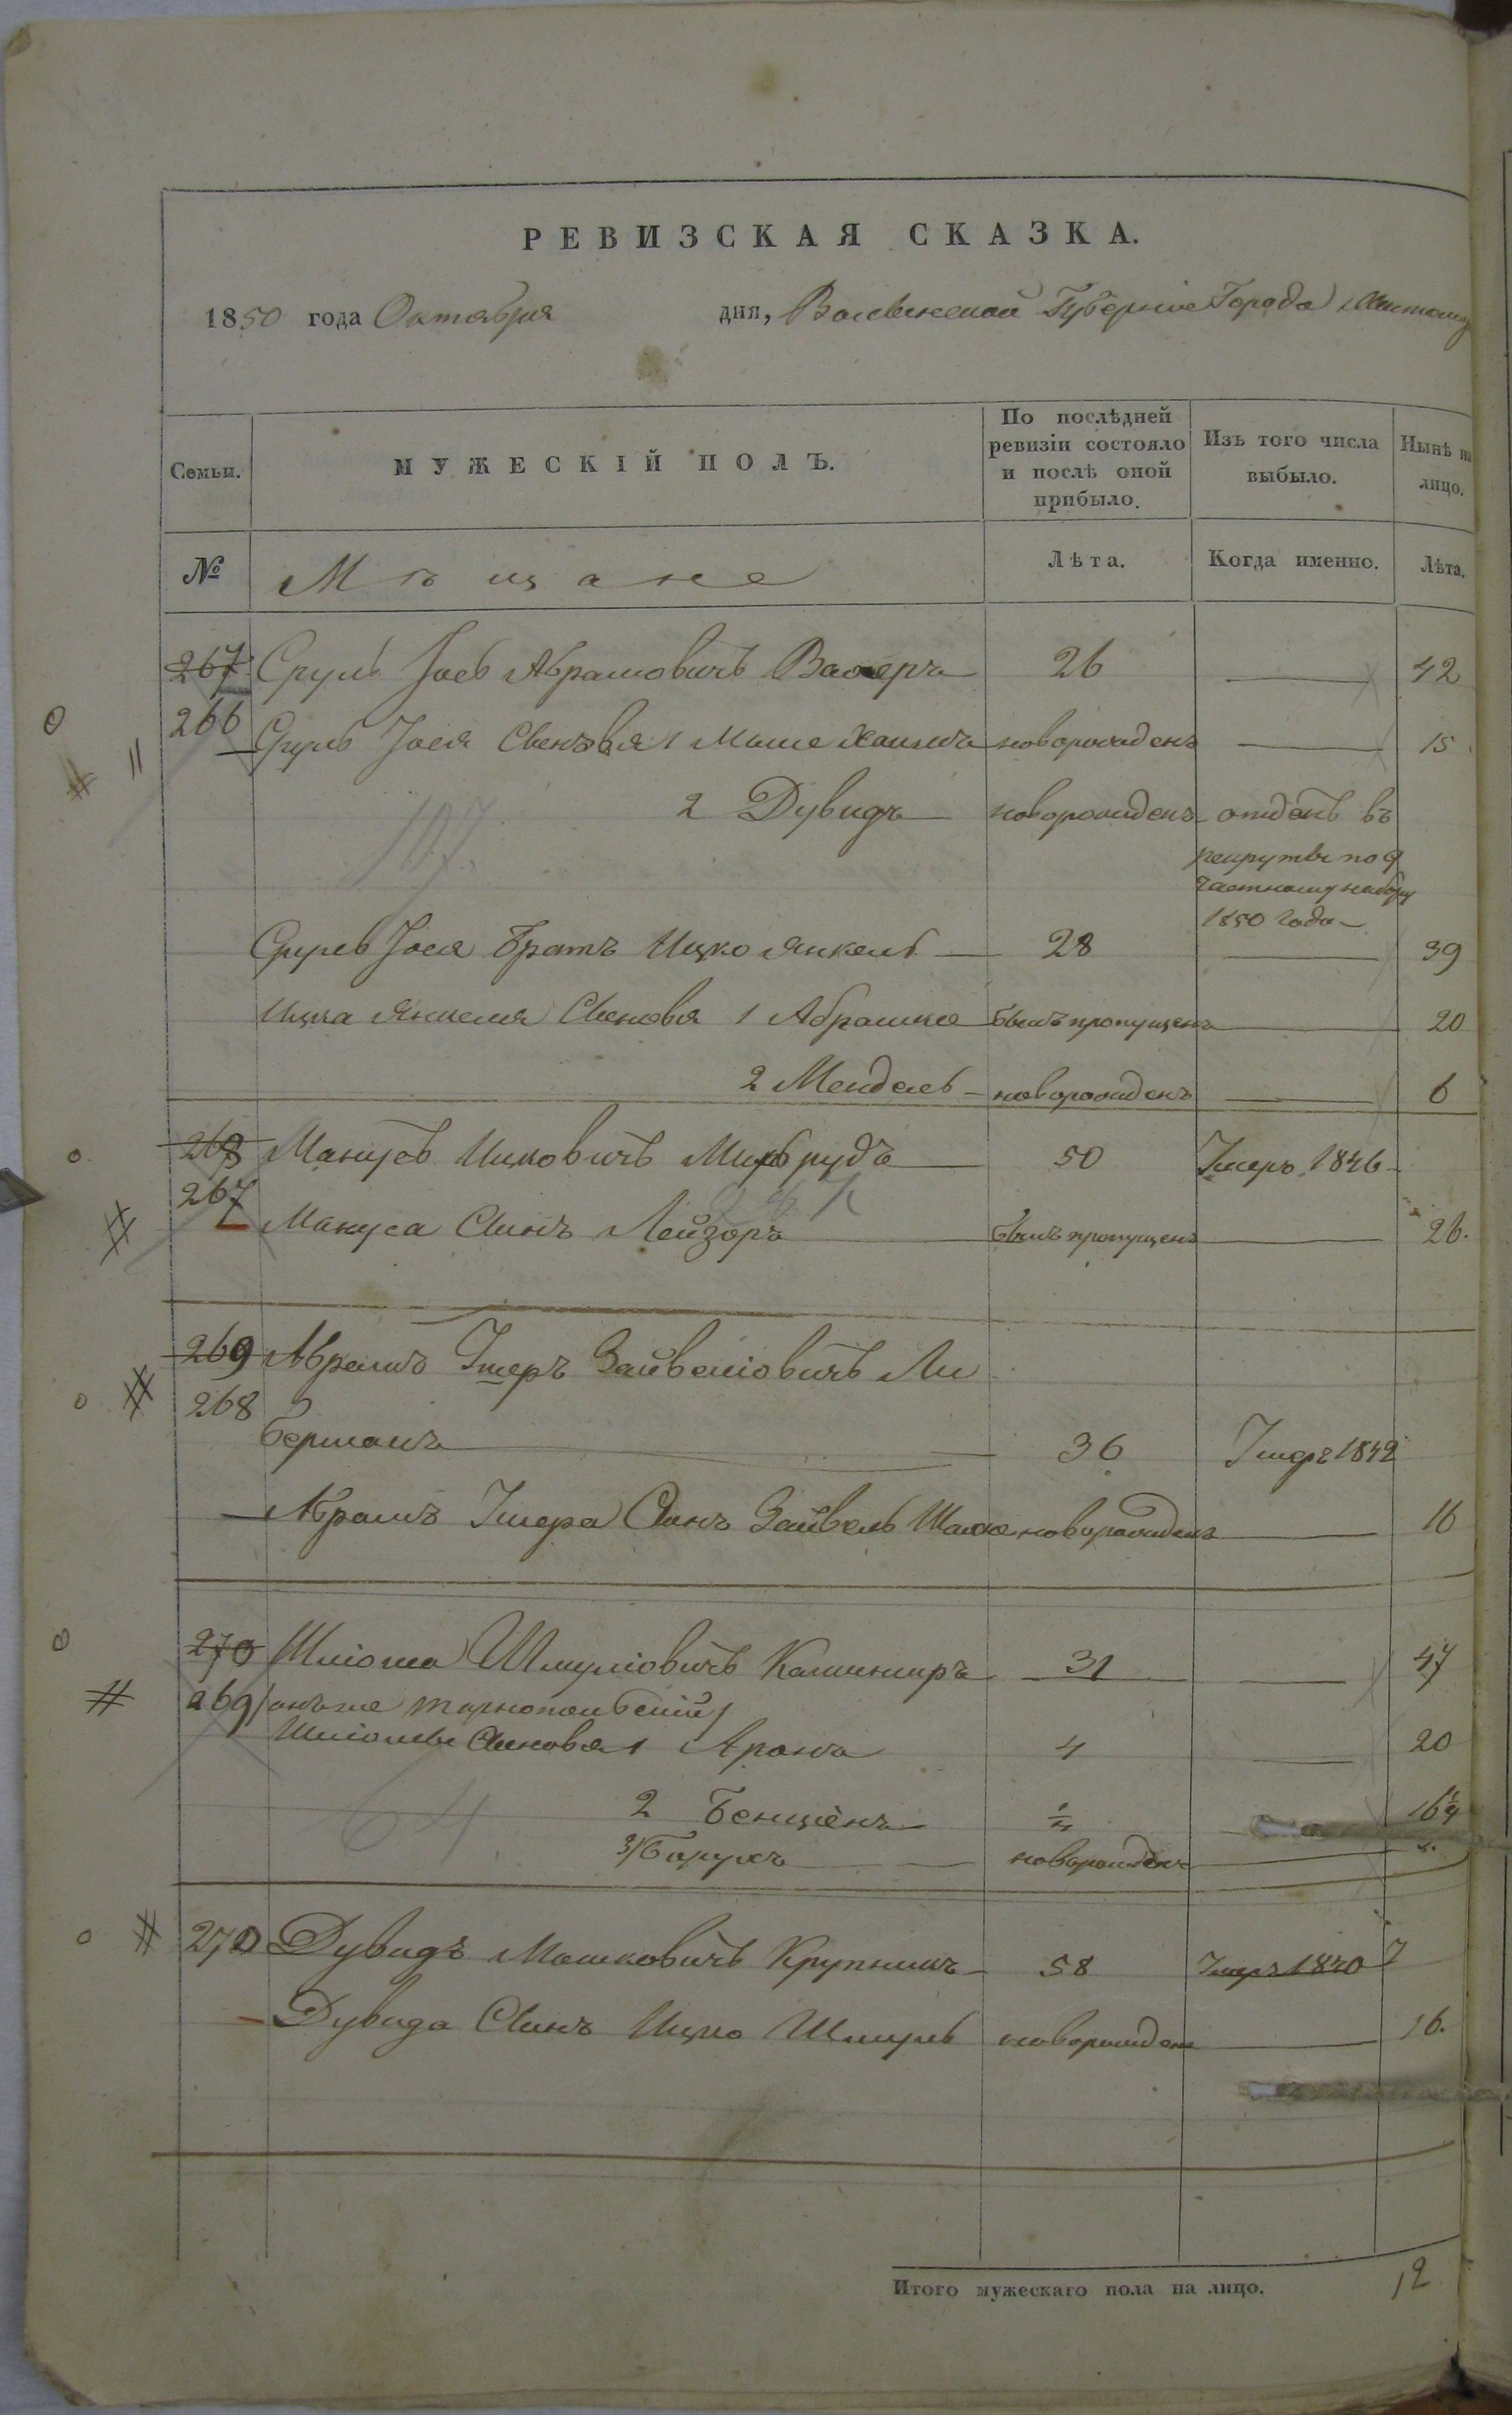 РЕВИЗСКАЯ СКАЗКА.
1850 года Октября дня, Волынской Губерніи Города
Семьи. МУЖЕСКІЙ ПОЛЪ. По послѣдней ревизіи состояло и послѣ оной прибыло. Изъ того числа выбыло. Нынѣ на лицо.
№ Мѣщане Лѣта. Когда именно. Лѣта.
267 Сруль Іось Абрамовичъ 26 42
266 Сруль Іося Сыновья 1 Мошко Хаимъ новорожденъ 15
2 Дувидъ новорожденъ отданъ въ
рекруты по 9
частному набору
1850 года
Сруль Іося братъ Ицко Янкель 28 39
Ицка Янкеля Сыновья 1 Абрамко былъ пропущенъ 20
2 Мендель новорожденъ 6
268 Манусъ Ицковичъ 50 Умеръ 1846
267 Мануса Сынъ Лейзоръ былъ пропущенъ 26.
269 Абрамъ Умеръ Зайвеліовичъ Ли
268
берманъ 36 Умеръ 1842
Абрамъ Умера Сынъ Зайвель новорожденъ 16
270 Шліома Шмуліовичъ 31 47
269 онъ же Тарнопольскій
Шліомы Сыновья 1 Аронъ 4 20
2 Бенціенъ 1/4 16 1/4
3 Барухъ новорожденъ
270 Дувидъ Мошковичъ Крупникъ 58 Умеръ 1840
Дувида Сынъ Ицко Шмуль новорожденъ 16.
Итого мужескаго пола на лицо. 12